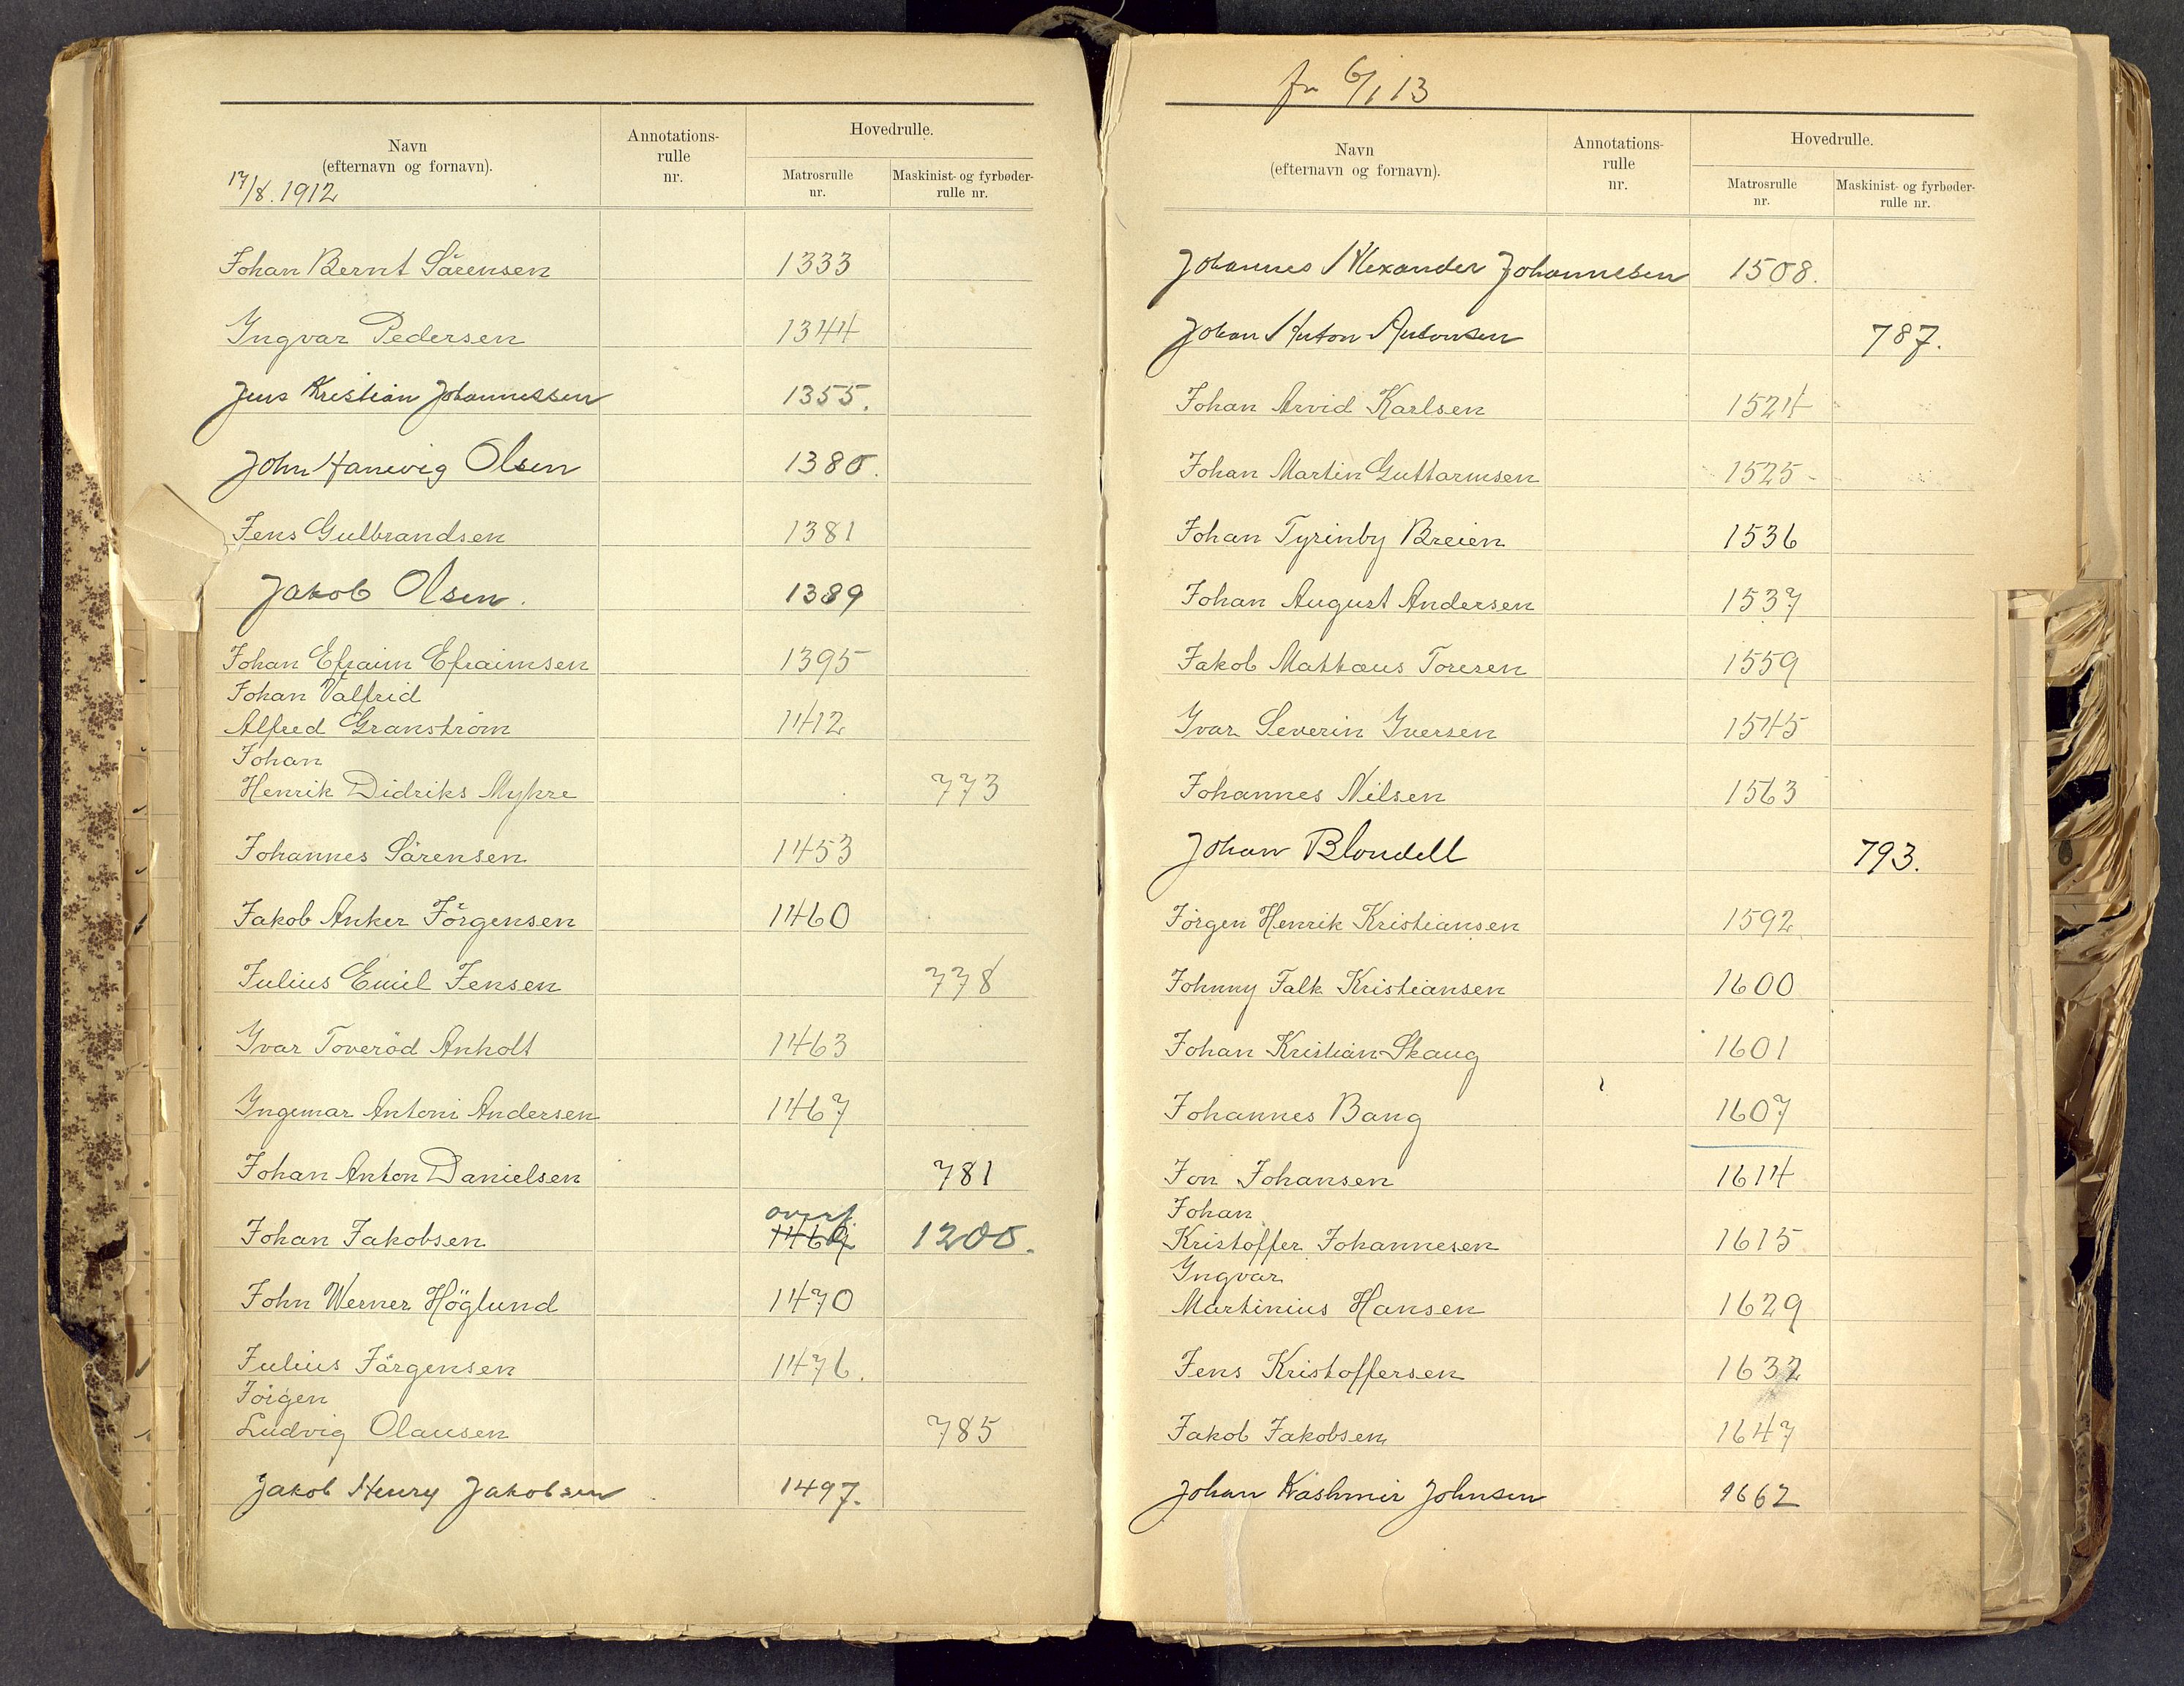 Navn
(efternavn og fornavn).
Annotations-
rulle
nr.
Hovedrulle.
Matrosrulle
nr.
Maskinist- og fyrbøder-
rulle nr.
17/8. 1912
Johan Bernt Sörensen 1333
Yngvar Pedersen 1344
Jens Kristian Johannessen 1355.
John Hanevig Olsen 1380.
Jens Gulbrandsen 1381
Jakob Olsen. 1389
Johan Efraim Efraimsen 1395
Johan Valfrid
Alfred Granström 1412
Johan
Henrik Didriks Myhre 773
Johannes Sörensen 1453
Jakob Anker Jörgensen 1460
Julius Emil Jensen 778
Yvar Toveröd Anholt 1463
Yngemar Antoni Andersen 1467
Johan Anton Danielsen 781
overf
Johan Jakobsen 1469 1200.
John Werner Höglund 1470
Julius Jörgensen 1476.
Jörgen
Ludvig Olausen 785
Jakob Henry Jakobsen 1497.
fr 6/1 13
Navn
(efternavn og fornavn).
Annotations-
rulle
nr.
Hovedrulle.
Matrosrulle
nr.
Maskinist- og fyrbøder-
rulle nr.
Johannes Alexander Johannesen 1508.
Johan Anton Antonsen 787.
Johan Arvid Karlsen 1524
Johan Martin Guttormsen 1525
Johan Tyrinby Breien 1536
Johan August Andersen 1537
Jakob Mathæus Toresen 1559
Yvar Severin Yversen 1545
Johannes Nilsen 1563
Johan Blondell 793.
Jörgen Henrik Kristiansen 1592
Johnny Falk Kristiansen 1600
Johan Kristian Skaug 1601
Johannes Bang 1607
Jon Johansen 1614
Johan
Kristoffer Johannesen 1615
Yngvar
Martinius Hansen 1629
Jens Kristoffersen 1632
Jakob Jakobsen 1647
Johan Kashmir Johnsen 1662